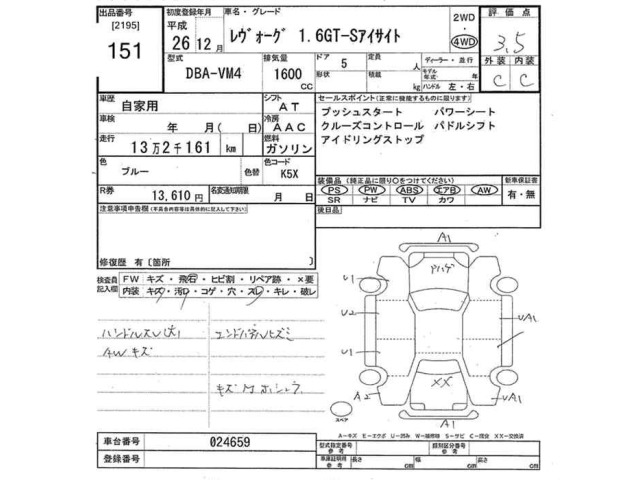 出品番号
[2195]
151
初度登録年月
平成
26 12 月
車名・グレード
レヴォーグ 1.6GT-Sアイサイト
2WD
・
4WD
評価点
3.5
外装 内装
C C
型式
DBA-VM4
排気量
1600
CC
ドア
5
形状
定員
人
積載
kg
ディーラー・並行
モデル年式
年
ハンドル 左・右
車歴
自家用
シフト
AT
車検
年 月( 日)
冷房
AAC
走行
13万2千161 km
燃料
ガソリン
色
ブルー
色替
色コード
K5X
R券
13,610円
名変通知期限
月 日
セールスポイント(正常に機能するものに限ります)
プッシュスタート パワーシート
クルーズコントロール パドルシフト
アイドリングストップ
装備品(純正品に限り○をつけてください)
PS PW ABS エアB AW
SR ナビ TV カワ
新車保証書
有・無
後日品
注意事項申告欄(写真含め内容等は具体的に記入して下さい)
修復歴 有〔箇所 〕
検査員
記入欄
FW キズ・飛石・ヒビ割・リペア跡・×要
内装 キズ・汚れ・コゲ・穴・スレ・キレ・破レ
AWキズ
A1
U1
U2
U1
A2
UA1
UA1
XX
A1
スペア
A-キズ E-エクボ U-凹み W-補修跡 S-サビ C-腐食 XX-交換済
車台番号
024659
登録番号
型式指定番号
参考
類別区分番号
参考
車庫証明用
参考
長さ cm
幅 cm
高さ cm